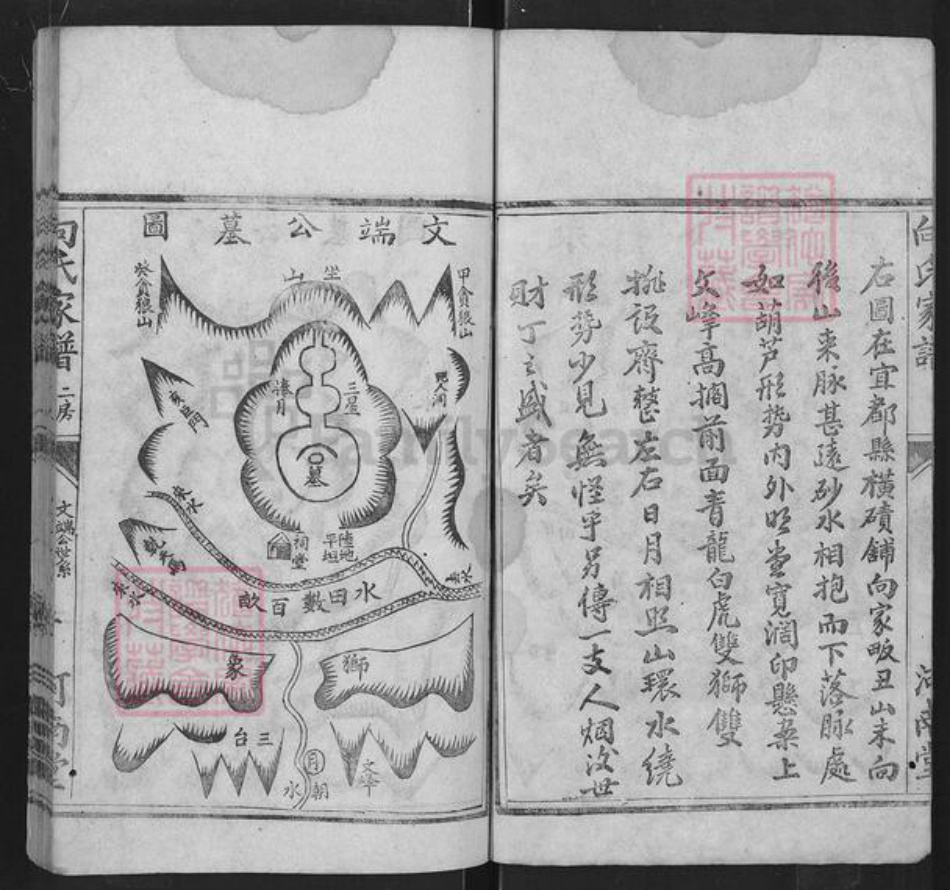 向氏家譜
河南堂
右圖在宜都縣橫磧鋪向家畈丑山未向
後山来脉甚遠砂水相抱而下落脉處
如葫芦形势内外明堂寬濶印懸案上
文峰高搁前面青龍白虎雙獅雙
排設齊整左右日月相照山環水繞
形势少見無怪乎另傳一支人烟汝世
財丁之盛者矣
文端公墓圖
坐山
甲貪狼山
癸貪狼山
三星
捧月
墓
祠堂
陸地平坦
来水
来水
来水
水田數百畝
獅
象
三台
文峰
月
朝水
向氏家譜
二房
文端公世系
河南堂
familysearch